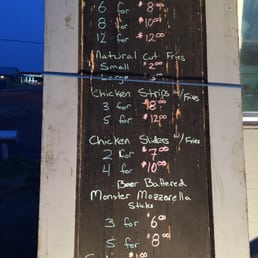 6 for $8.00
8 for $10.00
12 for $12.00
Natural Cut Fries
Small $2.00
Large
Chicken Strips w/Fries
3 for $8.00
5 for $12.00
Chicken Sliders w/Fries
2 for $7.00
4 for $10.00
Beer Battered
Monster Mozzarella
Sticks
3 for $6.00
5 for $8.00